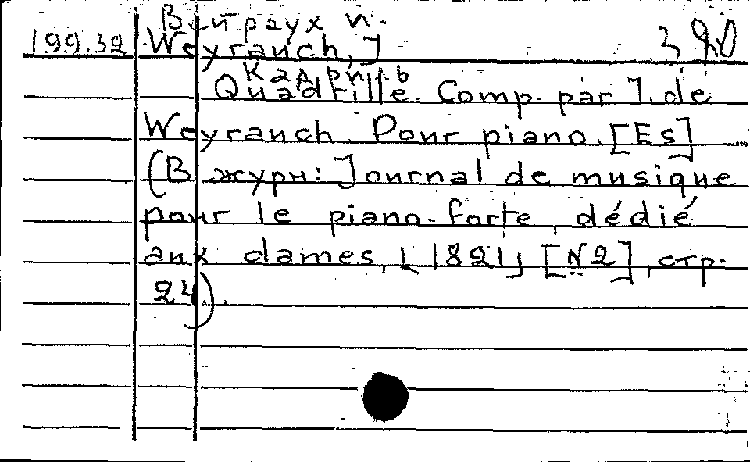 Вейраух И.
199.32 Weyranch, J 390
Кадриль
Quadrille. Comp. par J. de
Weyranch. Pour piano. [Es]
(В журн: Journal de musique
pour le piano-forte, dédié
aux dames, [1821] [N2], стр.
24).